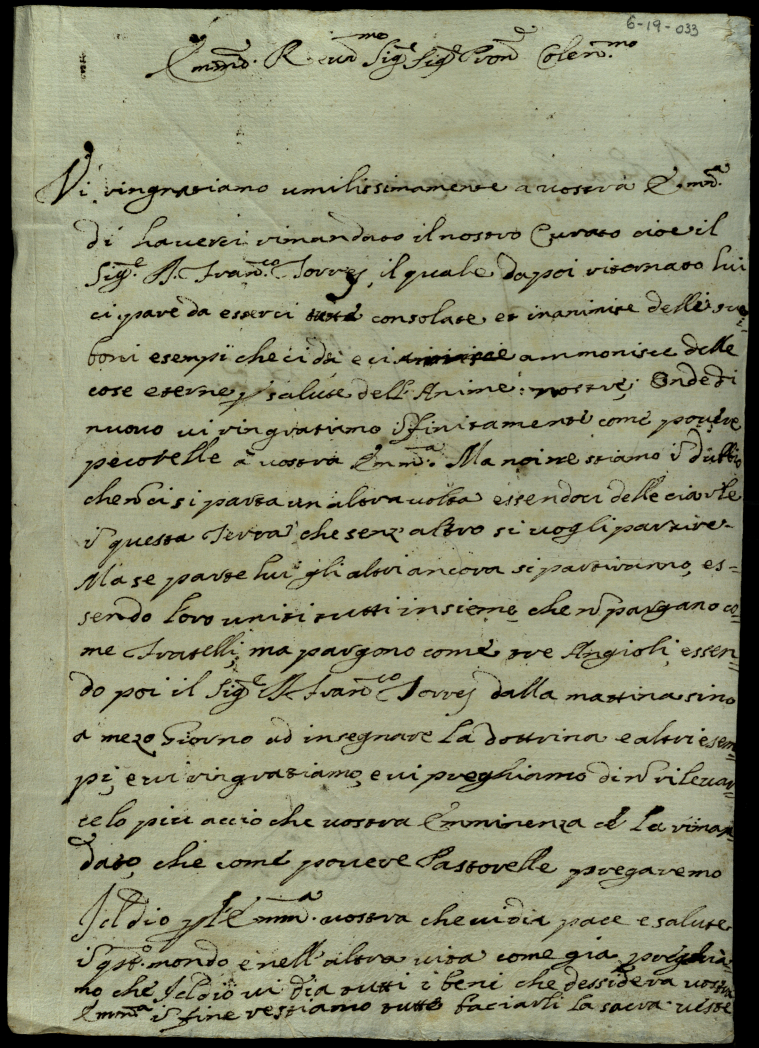 6-19-033
Emmo. R. Sigre Sigre Pron Colenmo
Vi ringratiamo umilissimamente a vostra Emma
di haverci rimandato il nostro Curato cioe il
Sige. D. Franco Torres, il quale dapoi ritornato lui
ci pare da esserci consolate et inanimite delli suoi
boni esempii che ci dà e ci ammonisce delle
cose eterne p salute dell'Anime nostre; Onde di
nuovo vi ringratiamo ĩfinitamente come povere
pecorelle a vostra Emma. Ma noi ne stiamo ĩ dubbio
che ñ ci si parta un altra volta essendoci delle ciarle
ĩ questa Terra che senz'altro si vogli partire.
Ma se parte lui gli altri ancora si partiranno, es=
sendo loro uniti tutti insieme che ñ pargano co=
me Fratelli, ma pargono come tre Angioli, essen=
do poi il Sige D. Franco Torres dalla mattina sino
a mezo Giorno ad insegnare La dottrina e altri esem=
pi, e vi ringratiamo, e vi preghiamo di ñ rilevar=
celo piu acciò che vostra Emminenza ce La riman=
dato, che come povere Pastorelle pregaremo
Iddio p L'Emma. vostra che vi dia pace e salute
ĩ qsto. mondo e nell'altra vita come gia preghia=
mo che Iddio vi dia tutti i beni che dessidera vostra
Emma ĩ fine restiamo tutte baciarli La sacra veste